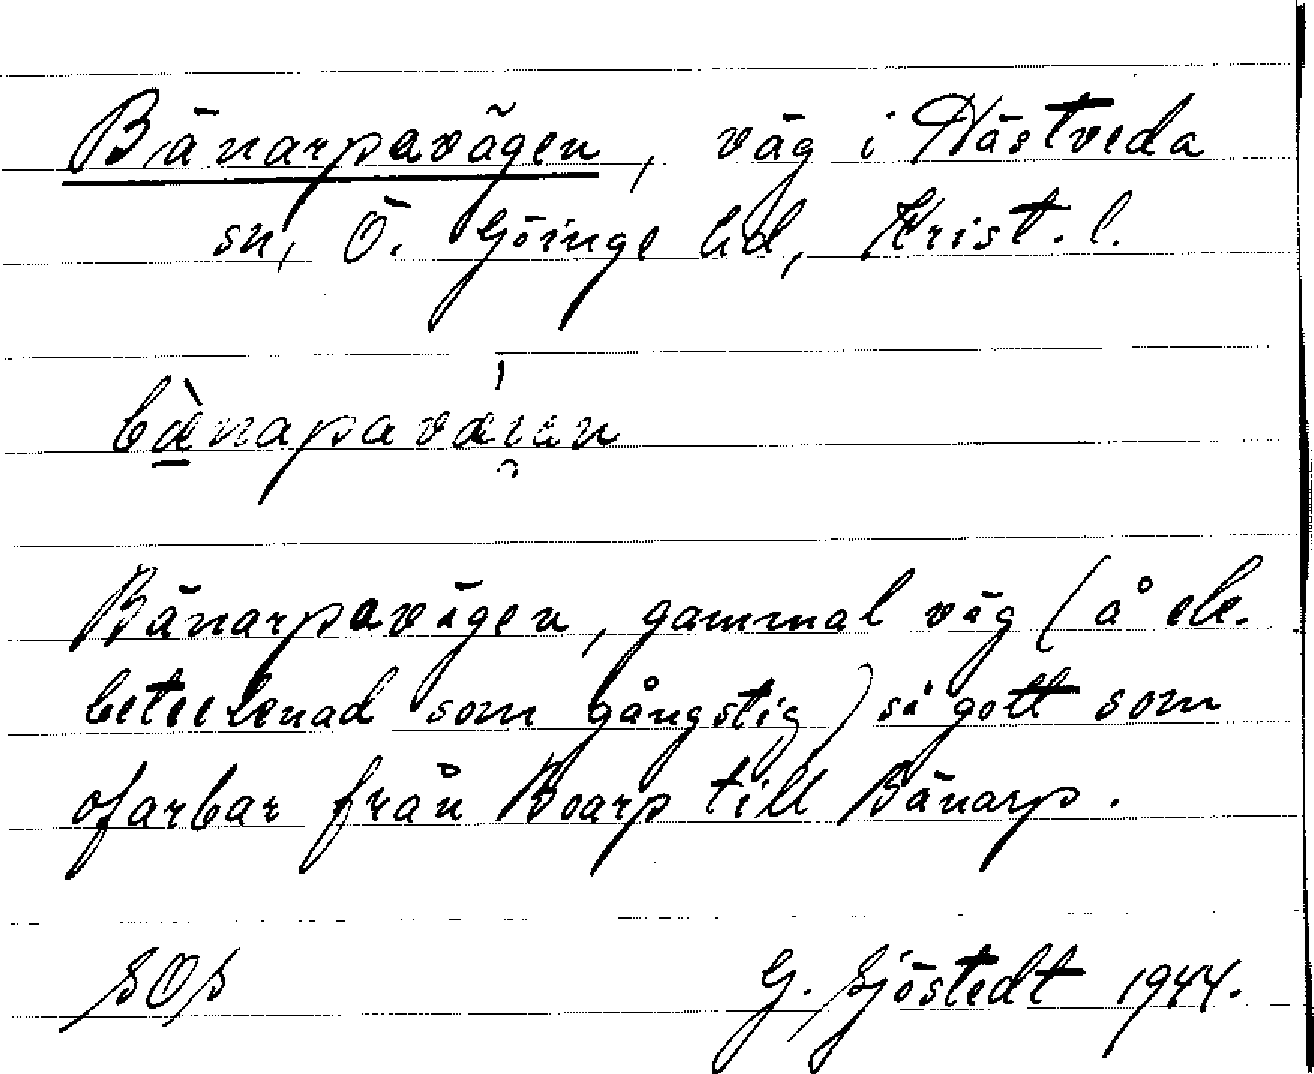 Bänarpavägen, väg i Hästveda
sn, Ö. Göinge hd, Krist. l.
bänapaväi̯en
Bänarpavägen, gammal väg (å ek.
betecknad som gångstig) så gott som
ofarbar från Boarp till Bänarp.
SOS
G. Sjöstedt 1944.